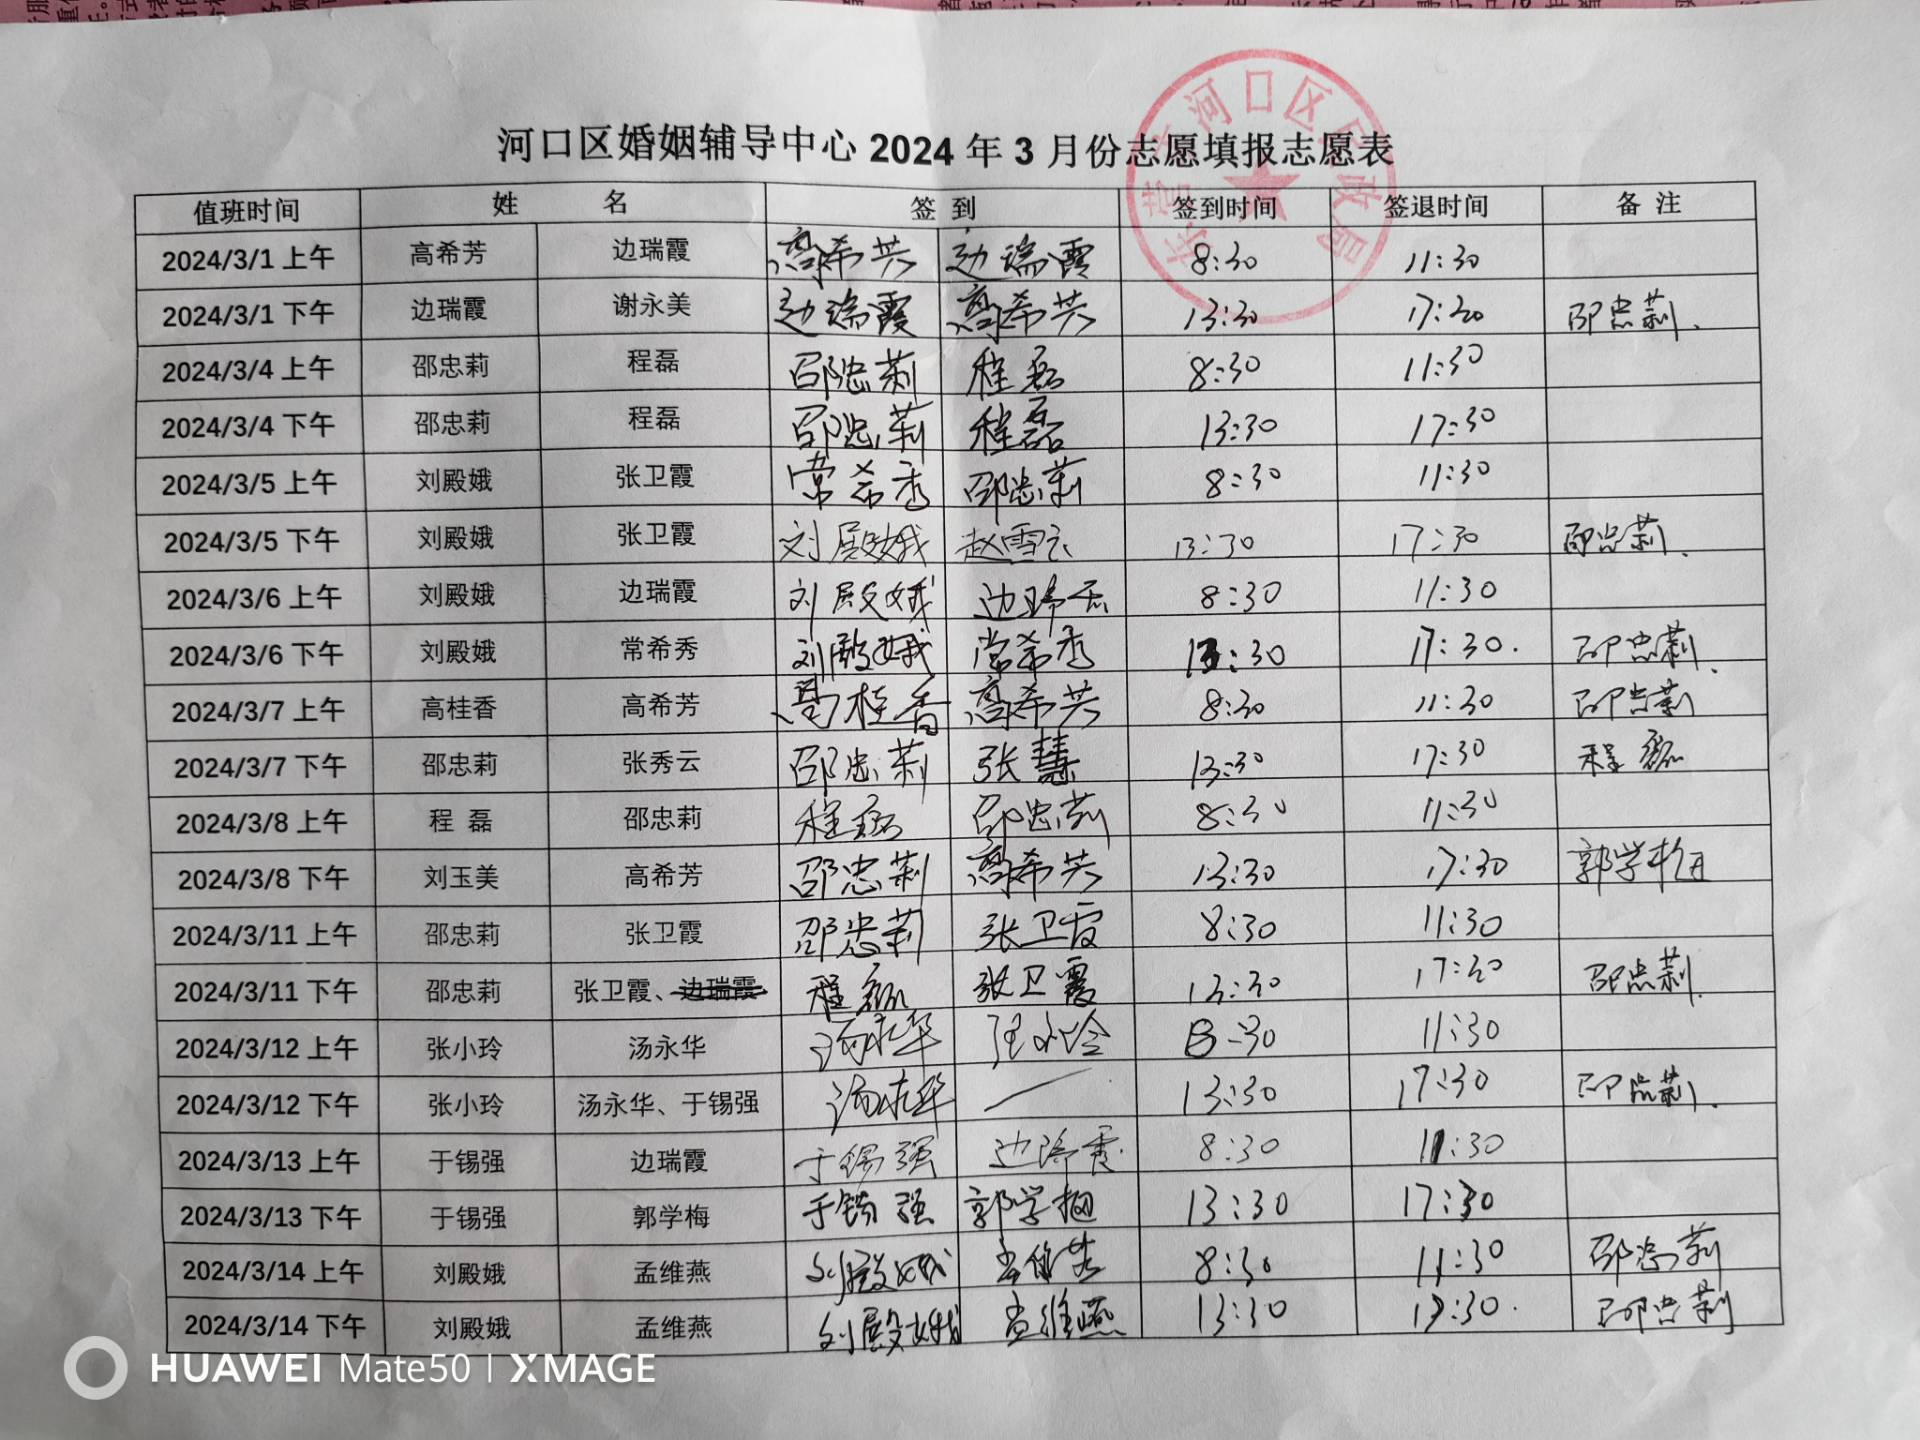 河口区婚姻辅导中心 2024 年 3 月份志愿填报志愿表
值班时间 姓 名 签 到 签到时间 签退时间 备 注
2024/3/1 上午 高希芳 边瑞霞 高希芳 边瑞霞 8:30 11:30
2024/3/1 下午 边瑞霞 谢永美 边瑞霞 高希芳 13:30 17:30 邵忠莉.
2024/3/4 上午 邵忠莉 程磊 邵忠莉 程磊 8:30 11:30
2024/3/4 下午 邵忠莉 程磊 邵忠莉 程磊 13:30 17:30
2024/3/5 上午 刘殿娥 张卫霞 常希秀 邵忠莉 8:30 11:30
2024/3/5 下午 刘殿娥 张卫霞 刘殿娥 赵雪云 13:30 17:30 邵忠莉.
2024/3/6 上午 刘殿娥 边瑞霞 刘殿娥 边瑞霞 8:30 11:30
2024/3/6 下午 刘殿娥 常希秀 刘殿娥 常希秀 13:30 17:30. 邵忠莉.
2024/3/7 上午 高桂香 高希芳 高桂香 高希芳 8:30 11:30 邵忠莉
2024/3/7 下午 邵忠莉 张秀云 邵忠莉 张慧 13:30 17:30 程磊
2024/3/8 上午 程 磊 邵忠莉 程磊 邵忠莉 8:30 11:30
2024/3/8 下午 刘玉美 高希芳 邵忠莉 高希芳 13:30 17:30 郭学梅
2024/3/11 上午 邵忠莉 张卫霞 邵忠莉 张卫霞 8:30 11:30
2024/3/11 下午 邵忠莉 张卫霞、边瑞霞 程磊 张卫霞 13:30 17:30 邵忠莉.
2024/3/12 上午 张小玲 汤永华 汤永华 张小玲 8:30 11:30
2024/3/12 下午 张小玲 汤永华、于锡强 汤永华 13:30 17:30 邵忠莉.
2024/3/13 上午 于锡强 边瑞霞 于锡强 边瑞霞 8:30 11:30
2024/3/13 下午 于锡强 郭学梅 于锡强 郭学梅 13:30 17:30
2024/3/14 上午 刘殿娥 孟维燕 刘殿娥 孟维燕 8:30 11:30 邵忠莉
2024/3/14 下午 刘殿娥 孟维燕 刘殿娥 孟维燕 13:30 17:30. 邵忠莉
HUAWEI Mate50 | XMAGE